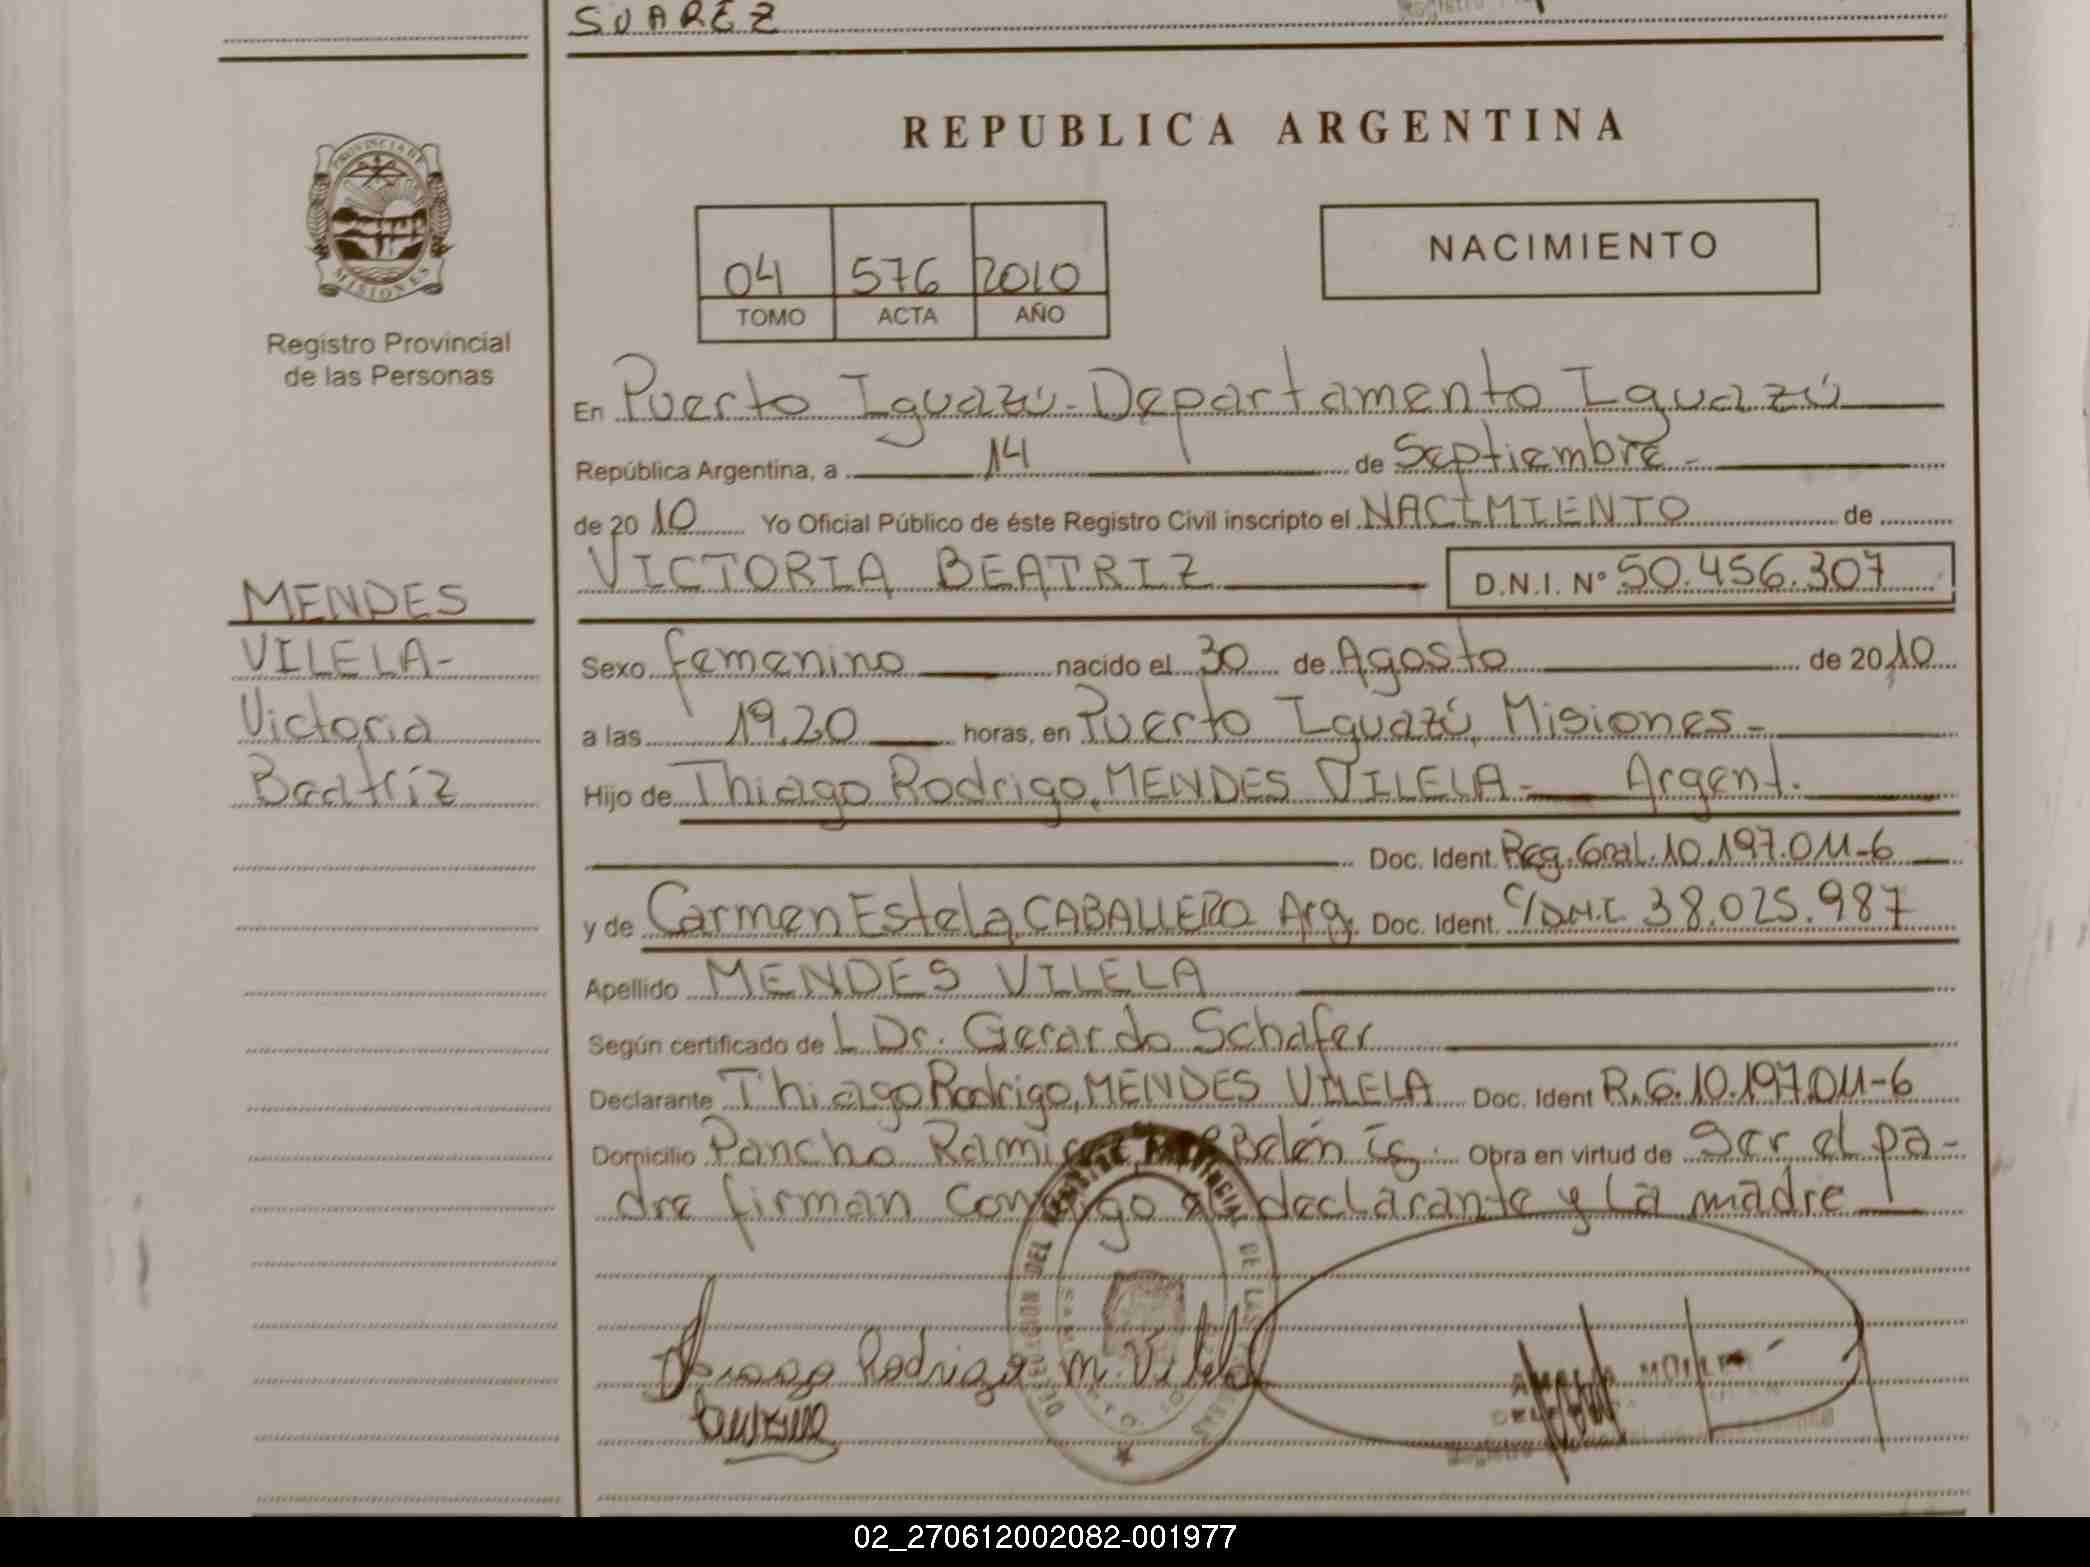 SUAREZ
PROVINCIA DE
MISIONES
Registro Provincial
de las Personas
REPUBLICA ARGENTINA
04 576 2010
TOMO ACTA AÑO
NACIMIENTO
En Puerto Iguazú - Departamento Iguazú
República Argentina, a 14 de Septiembre -
de 2010 Yo Oficial Público de éste Registro Civil inscripto el NACIMIENTO de
VICTORIA BEATRIZ D.N.I. N° 50.456.307
MENDES
VILELA-
Victoria
Beatríz
Sexo femenino nacido el 30 de Agosto de 2010
a las 19,20 horas, en Puerto Iguazú, Misiones -
Hijo de Thiago Rodrigo, MENDES VILELA - Argent.
Doc. Ident. Reg. Gral. 10.197.011-6
y de Carmen Estela, CABALLERO Arg. Doc. Ident. C/D.N.I. 38.025.987
Apellido MENDES VILELA
Según certificado de L Dr. Gerardo Schafer
Declarante Thiago Rodrigo, MENDES VILELA Doc. Ident R.G. 10.197.011-6
Domicilio Pancho Belén Ig. Obra en virtud de Ser el pa-
dre firman conmigo el declarante y la madre
Thiago Rodrigo M. Vilela
02_270612002082-001977